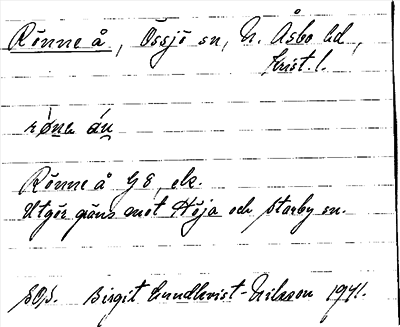 Rönne å, Össjö sn, N. Åsbo hd,
Krist. l.
rǿnɛ án
Rönne å GE, ek.
Utgör gräns mot Höja och Starby sn.
Birgit Lundkvist-Nilsson 1941.